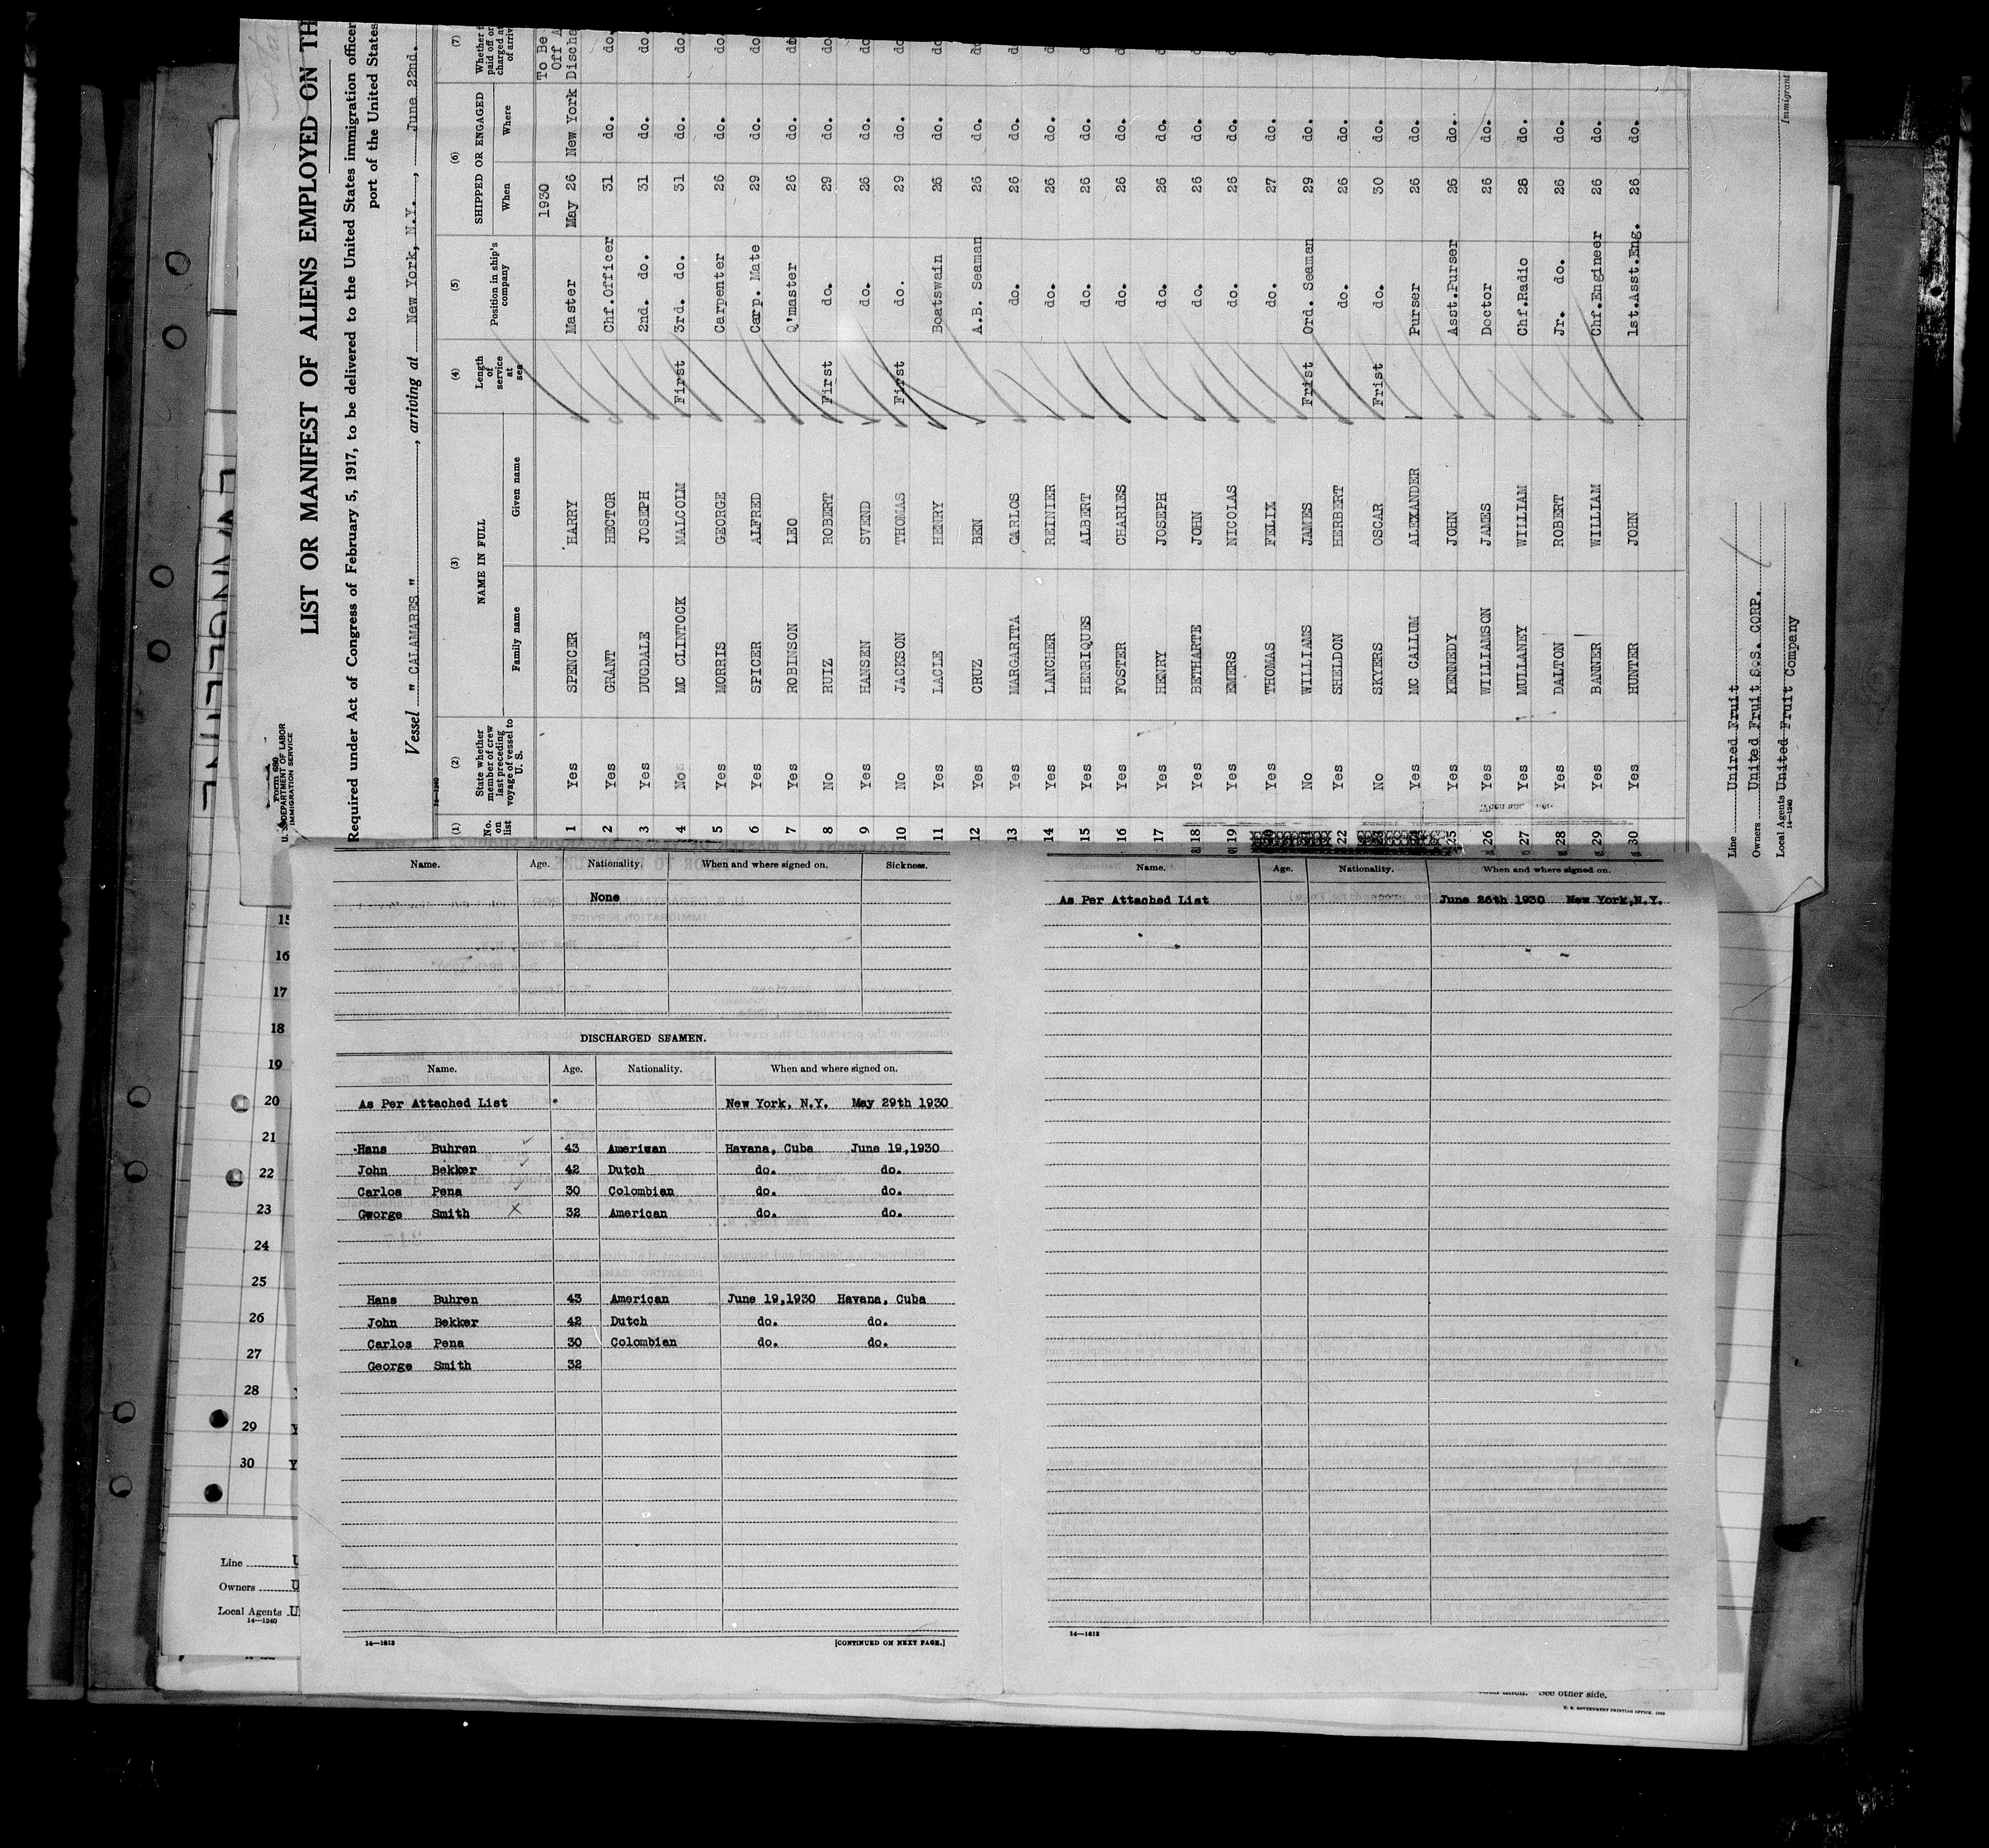 Form 680
U. S. DEPARTMENT OF LABOR
IMMIGRATION SERVICE
LIST OR MANIFEST OF ALIENS EMPLOYED ON TH
Required under Act of Congress of February 5, 1917, to be delivered to the United States immigration officer
port of the United States
Vessel " CALAMARES " , arriving at New York, N.Y. , June 22nd.
14—1240
(1) (2) (3) (4) (5) (6) (7)
No. on list State whether member of crew last preceding voyage of vessel to U. S. NAME IN FULL Length of service at sea Position in ship's company SHIPPED OR ENGAGED Whether
Family name Given name When Where
1930 To Be
1 Yes SPENCER HARRY Master May 26 New York Discha
2 Yes GRANT HECTOR Chf.Officer 31 do. do.
3 Yes DUGDALE JOSEPH 2nd. do. 31 do. do.
4 No MC CLINTOCK MALCOLM First 3rd. do. 31 do. do.
5 Yes MORRIS GEORGE Carpenter 26 do. do.
6 Yes SPICER ALFRED Carp. Mate 29 do. do.
7 Yes ROBINSON LEO Q'master 26 do. do
8 No RUIZ ROBERT First do. 29 do. do
9 Yes HANSEN SVEND do. 26 do. do
10 No JACKSON THOMAS First do. 29 do. do
11 Yes LACLE HENRY Boatswain 26 do. do
12 Yes CRUZ BEN A.B. Seaman 26 do. do
13 Yes MARGARITA CARLOS do. 26 do. do
14 Yes LANCHER REINIER do. 26 do. do
15 Yes HENRIQUES ALBERT do. 26 do. do
16 Yes FOSTER CHARLES do. 26 do. do
17 Yes HENRY JOSEPH do. 26 do. do
18 Yes BETHARTE JOHN do. 26 do. do
19 Yes EMERS NICOLAS do. 26 do. do
Yes THOMAS FELIX do. 27 do. do
No WILLIAMS JAMES Frist Ord. Seaman 29 do. do
22 Yes SHELDON HERBERT do. 26 do. do
No SKYERS OSCAR Frist do. 30 do. do
Yes MC CALLUM ALEXANDER Purser 26 do. do
25 Yes KENNEDY JOHN Asst.Purser 26 do. do
26 Yes WILLIAMSON JAMES Doctor 26 do.
27 Yes MULLANEY WILLIAM Chf.Radio 28 do.
28 Yes DALTON ROBERT Jr. do. 26 do.
29 Yes BANNER WILLIAM Chf.Engineer 26 do.
30 Yes HUNTER JOHN 1st.Asst.Eng. 26 do.
Line Unired Fruit
Owners United Fruit Ss. CORP.
Local Agents United Fruit Company
14—1240
Immigrant
Name. Age. Nationality. When and where signed on. Sickness.
None
DISCHARGED SEAMEN.
Name. Age. Nationality. When and where signed on.
As Per Attached List New York, N.Y. May 29th 1930
Hans Buhren 43 Ameriwan Havana, Cuba June 19,1930
John Bekker 42 Dutch do. do.
Carlos Pena 30 Colombian do. do.
Gworge Smith 32 American do. do.
Hans Buhren 43 American June 19,1930 Havana, Cuba
John Bekker 42 Dutch do. do.
Carlos Pena 30 Colombian do. do.
George Smith 32
14—1613 [CONTINUED ON NEXT PAGE.]
Name. Age. Nationality. When and where signed on.
As Per Attached List June 26th 1930 New York,N.Y.
14—1613
15
16
17
18
19
20
21
22
23
24
25
26
27
28
29
30
Line
Owners
Local Agents
14—1240
See other side.
U. S. GOVERNMENT PRINTING OFFICE